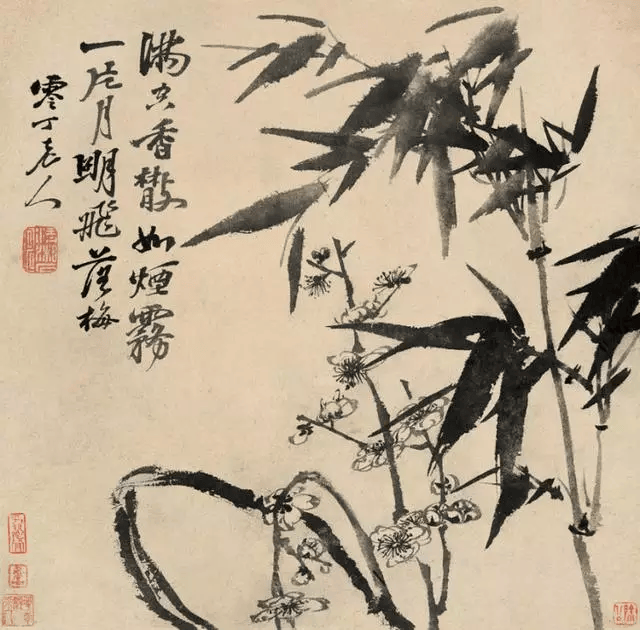 滿空香散如煙霧
一片月明飛落梅
零丁老人